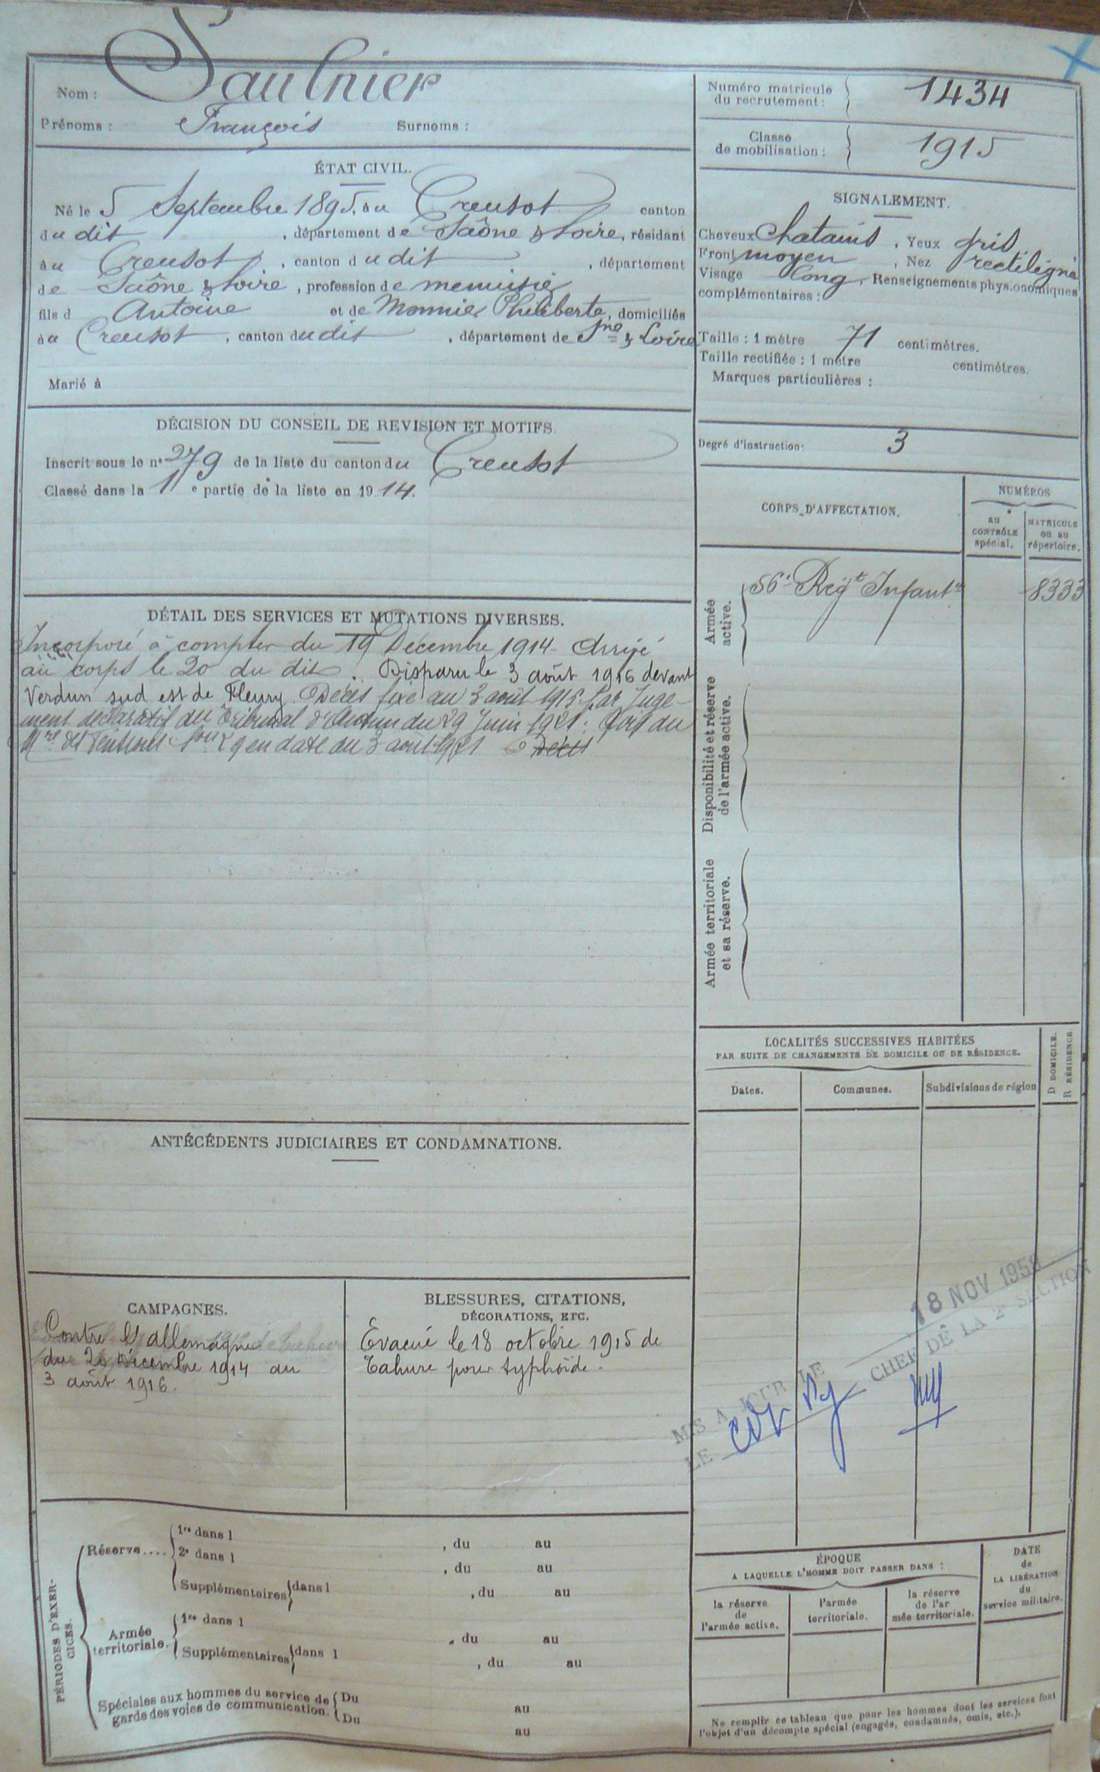 Nom : Saulnier
Prénoms : François Surnoms :
ÉTAT CIVIL.
Né le 5 Septembre 1895, au Creusot canton
du dit, département de Saône & Loire, résidant
à au Creusot, canton d u dit, département
de Saône & Loire, profession de menuisier
fils d Antoine et de Monnier Philiberte, domiciliés
à au Creusot, canton du dit, département de Sne & Loire
Marié à
DÉCISION DU CONSEIL DE REVISION ET MOTIFS.
Inscrit sous le n° 279 de la liste du canton du Creusot
Classé dans la 1 e partie de la liste en 19 14.
DÉTAIL DES SERVICES ET MUTATIONS DIVERSES.
Incorporé à compter du 19 Décembre 1914 - Arrivé
au corps le 20 du dit. Disparu le 3 août 1916 devant
Verdun sud est de Fleury. Décès fixé au 3 août 1916 par Juge-
ment déclaratif du Tribunal d'Autun du 29 Juin 1921.
en date du 3 août 1921 Décès
ANTÉCÉDENTS JUDICIAIRES ET CONDAMNATIONS.
CAMPAGNES.
Contre les allemagne
du 20 Décembre 1914 au
3 août 1916.
BLESSURES, CITATIONS,
DÉCORATIONS, ETC.
Évacué le 18 octobre 1915 de
Tahure pour typhoïde.
PÉRIODES D'EXERCICES.
Réserve .... 1re dans l , du au
2e dans l , du au
Supplémentaires dans l , du au
Armée territoriale. 1re dans l , du au
Supplémentaires dans l , du au
Spéciales aux hommes du service de Du au
garde des voies de communication. Du au
Numéro matricule
du recrutement : 1434
Classe
de mobilisation : 1915
SIGNALEMENT.
Cheveux Chatains, Yeux gris
Front moyen, Nez rectiligne
Visage long, Renseignements physionomiques
complémentaires :
Taille : 1 mètre 71 centimètres.
Taille rectifiée : 1 mètre centimètres.
Marques particulières :
Degré d'instruction: 3
CORPS D'AFFECTATION.
NUMÉROS
au
CONTRÔLE
spécial.
MATRICULE
ou au
répertoire.
Armée
active.
56e Régt Infantie 8333
Disponibilité et réserve
de l'armée active.
Armée territoriale
et sa réserve.
LOCALITÉS SUCCESSIVES HABITÉES
PAR SUITE DE CHANGEMENTS DE DOMICILE OU DE RÉSIDENCE.
Dates. Communes. Subdivisions de région
D DOMICILE.
R RÉSIDENCE
MIS A JOUR LE
18 NOV 1958
LE CHEF DE LA 2e SECTION
ÉPOQUE
A LAQUELLE L'HOMME DOIT PASSER DANS :
la réserve
de
l'armée active.
l'armée
territoriale.
la réserve
de l'ar
mée territoriale.
DATE
de
LA LIBÉRATION
du
service militaire.
Ne remplir ce tableau que pour les hommes dont les services font
l'objet d'un décompte spécial (engagés, condamnés, omis, etc.).